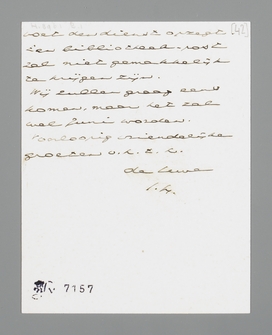 [42]
wat den dienst opzegt
Een bibliotheek-post
zal niet gemakkelijk
te krijgen zijn.
Wij zullen graag eens
komen, maar het zal
wel Juni worden.
Voorloopig vriendelijke
groeten v.h.t.h.
de Uwe
7157